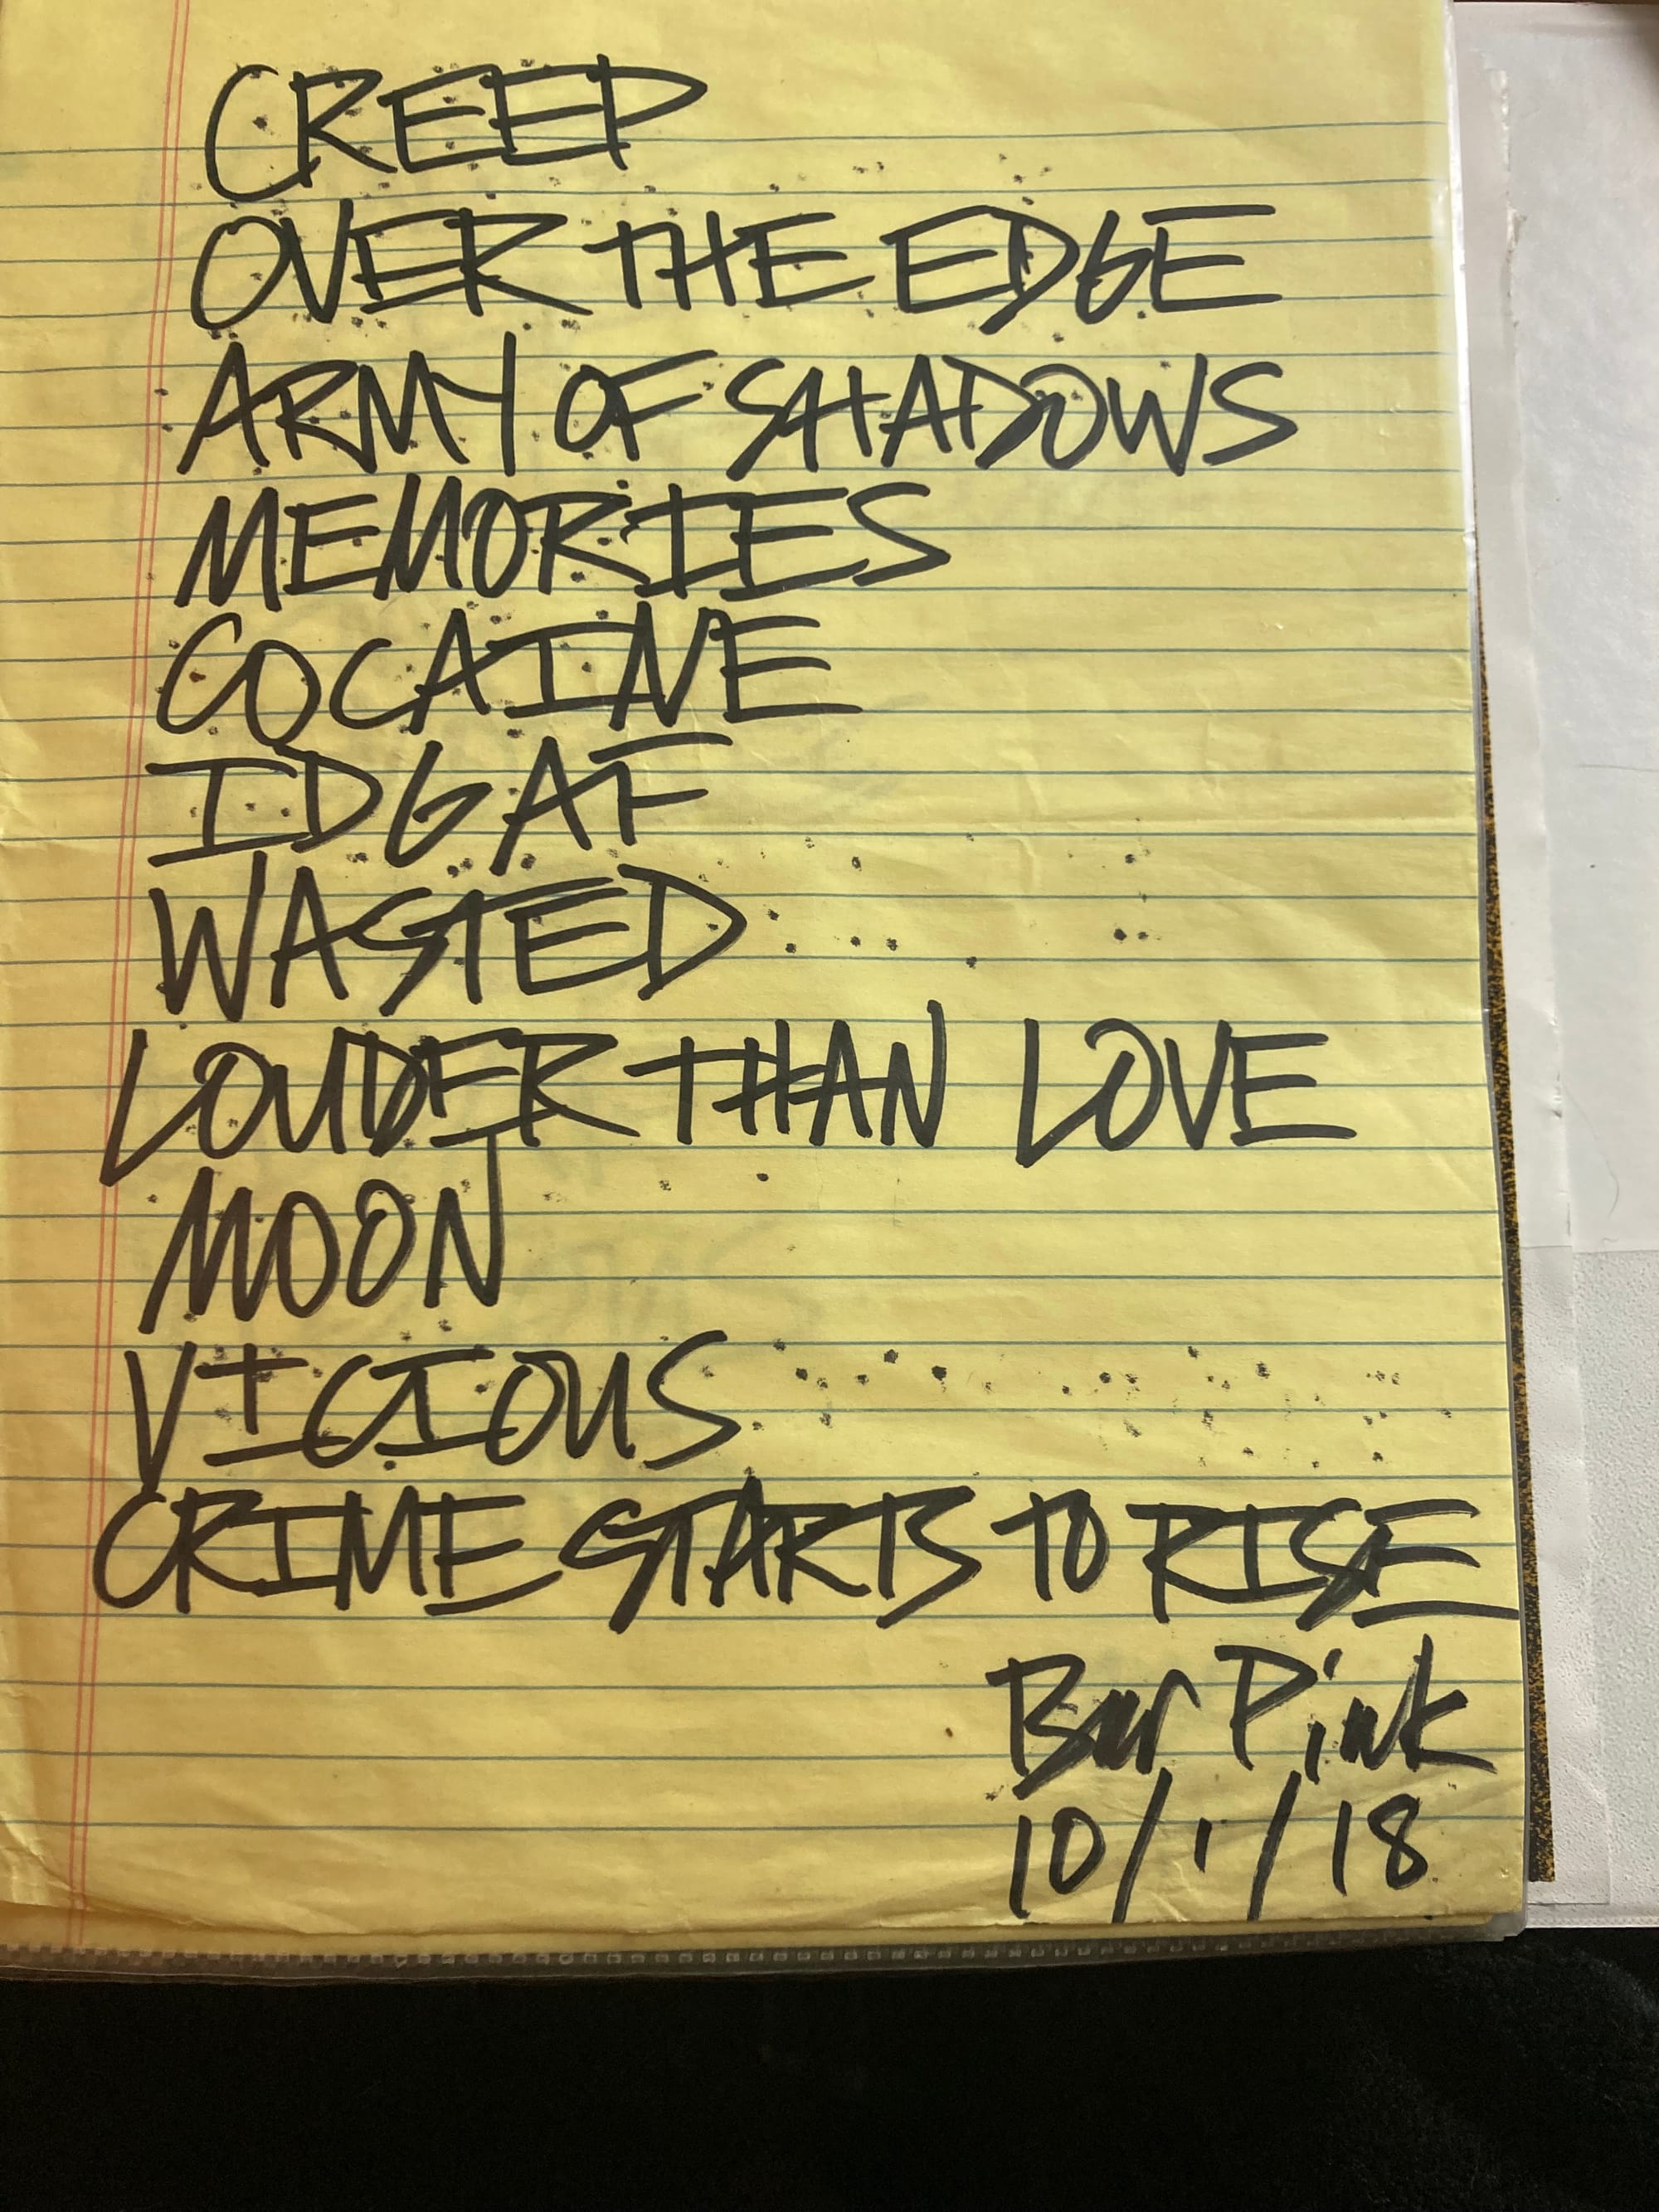 CREEP
OVER THE EDGE
ARMY OF SHADOWS
MEMORIES
COCAINE
IDGAF
WASTED
LOUDER THAN LOVE
MOON
VICIOUS
CRIME STARTS TO RISE
Bar Pink
10/1/18